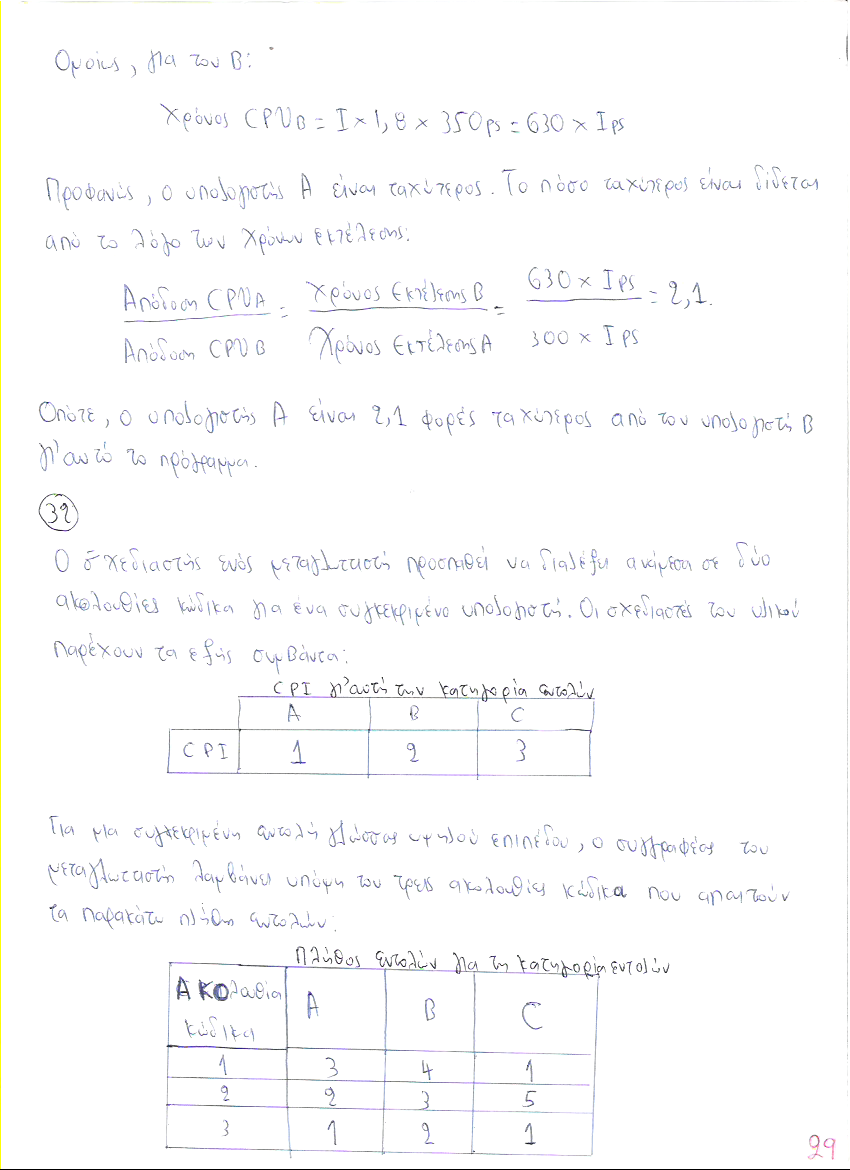 Ομοίως, για τον Β:
Χρόνος CPU_B = I × 1,8 × 350ps = 630 × I ps
Προφανώς, ο υπολογιστής Α είναι ταχύτερος. Το πόσο ταχύτερος είναι δίδεται
από το λόγο των χρόνων εκτέλεσης:
Απόδοση CPU_A / Απόδοση CPU_B = Χρόνος Εκτέλεσης Β / Χρόνος Εκτέλεσης Α = 630 × I ps / 300 × I ps = 2,1.
Οπότε, ο υπολογιστής Α είναι 2,1 φορές ταχύτερος από τον υπολογιστή Β
γι'αυτό το πρόγραμμα.
32
Ο σχεδιαστής ενός μεταγλωτιστή προσπαθεί να διαλέξει ανάμεσα σε δύο
ακολουθίες κώδικα για ένα συγκεκριμένο υπολογιστή. Οι σχεδιαστές του υλικού
παρέχουν τα εξής συμβάντα:
CPI γι'αυτή την κατηγορία εντολών
A B C
CPI 1 2 3
Για μια συγκεκριμένη εντολή γλώσσας υψηλού επιπέδου, ο συγγραφέας του
μεταγλωτιστή λαμβάνει υπόψη του τρεις ακολουθίες κώδικα που απαιτούν
τα παρακάτω πλήθη εντολών:
Πλήθος εντολών για τη κατηγορία εντολών
Ακολουθία
κώδικα A B C
1 3 4 1
2 2 3 5
3 1 2 1
29